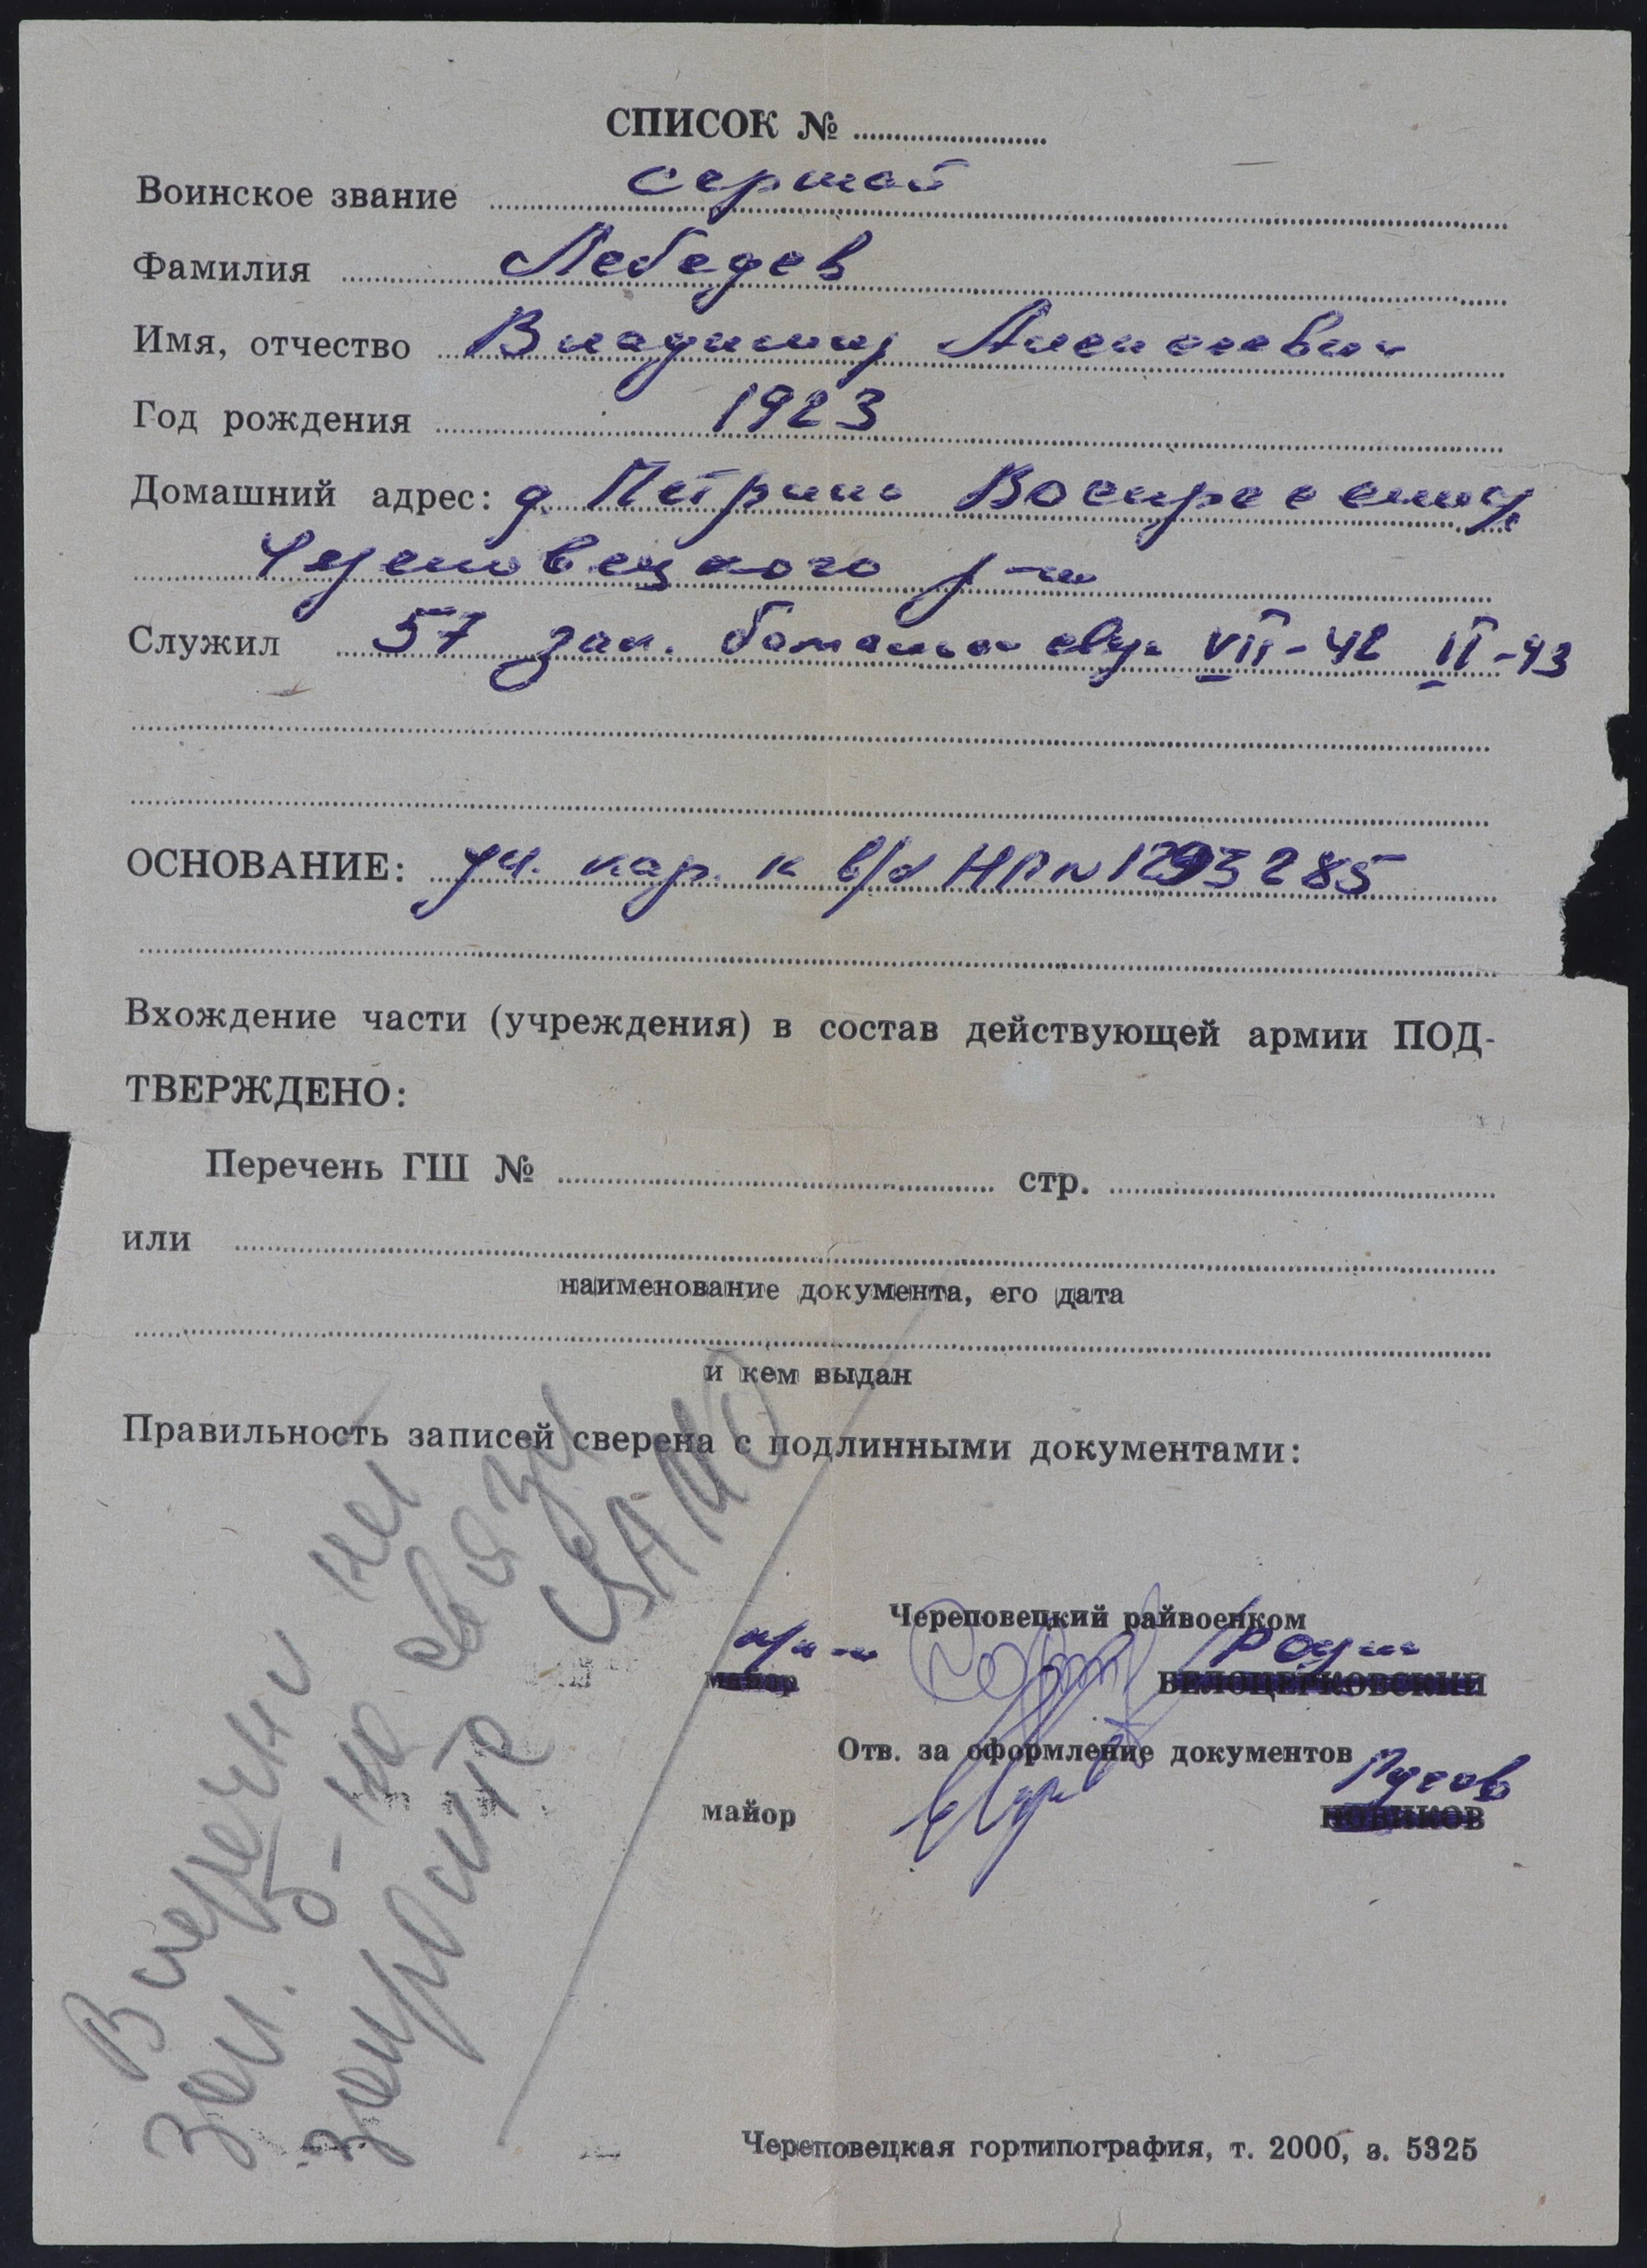 СПИСОК №
Воинское звание
Фамилия Лебедев
Имя, отчество Владимир Алексеевич
Год рождения 1923
Домашний адрес: д. Петрино
Череповецкого р-на
Служил 57 зап. батальон связи VII-42 II-43
ОСНОВАНИЕ: уч. кар. к в/б НП № 1293285
Вхождение части (учреждения) в состав действующей армии ПОД-
ТВЕРЖДЕНО:
Перечень ГШ № стр.
или
наименование документа, его дата
и кем выдан
Правильность записей сверена с подлинными документами:
В перечни
зап. б-на связи
запросите ЦАМО
Череповецкий райвоенком
майор БЕЛОЦЕРКОВСКИЙ
Отв. за оформление документов
майор НОВИКОВ
Череповецкая гортипография, т. 2000, з. 5325